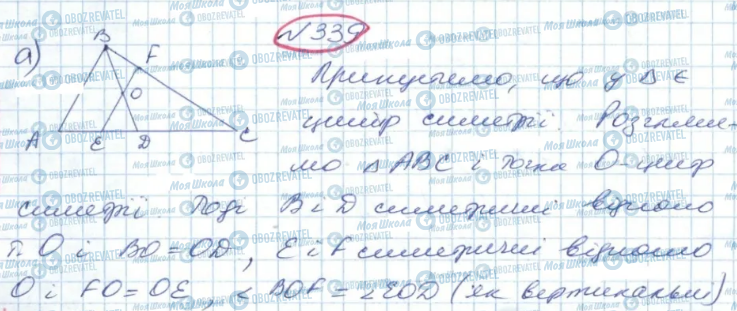 №339
а)
B
F
O
A E D C
Припустимо, що у Δ є
центр симетрії. Розгляне-
мо Δ ABC і точка O-центр
симетрії Тоді B і D симетричні відносно
т. O і BO = OD, E і F симетричні відносно
O і FO = OE, ∠ BOF = ∠EOD (як вертикальні)